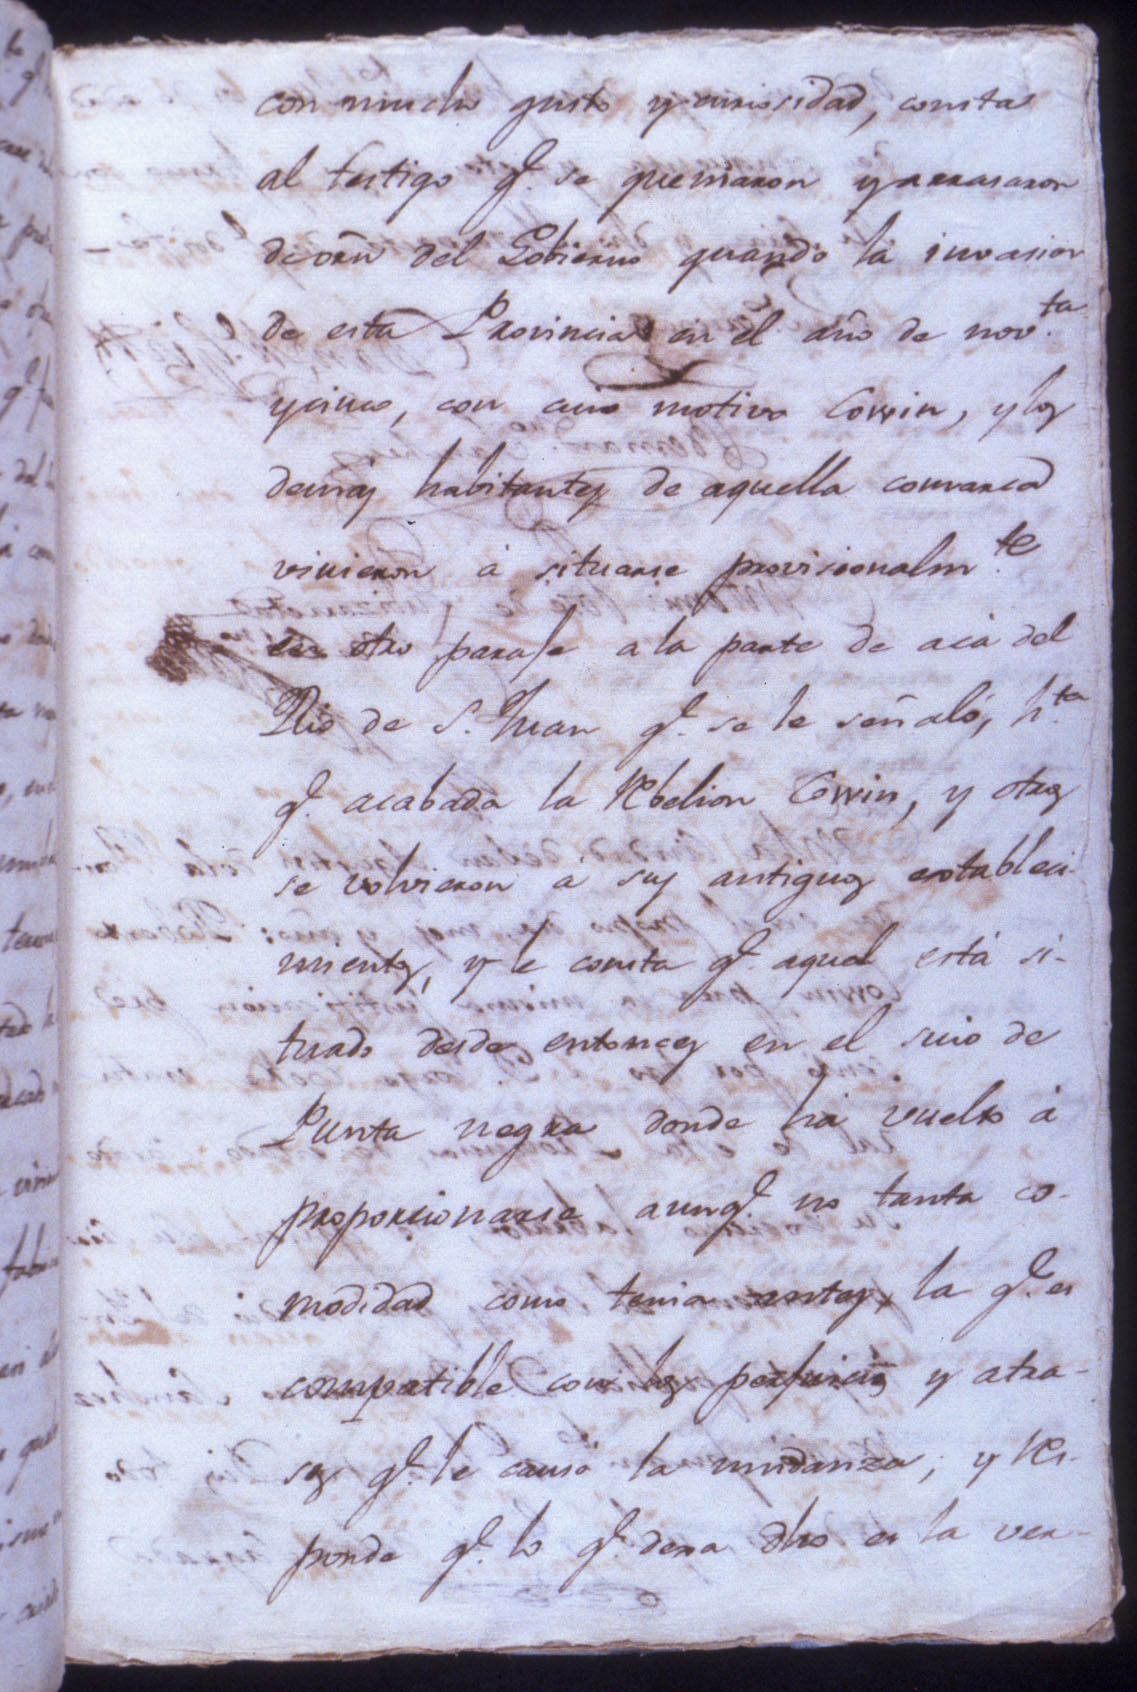 con mucho gusto y curiosidad, consta
al testigo q.e se quemaron y arrasaron
de orn del Gobierno quando la invasion
de esta Provincia en el año de nov.ta
y cinco, con cuio motivo Cowin, y los
demas habitantes de aquella comarca
vinieron á situarse provisionalm.te
en otro paraje a la parte de acá del
Rio de S. Juan q.e se le señaló, h.ta
q.e acabada la Rebelion Cowin, y otros
se volvieron á sus antiguos estableci-
mientos, y le consta q.e aquel está si-
tuado desde entonces en el suio de
Punta negra donde ha vuelto á
proporcionarse aunq.e no tanta co-
modidad como tenia antes, la q.e es
compatible con los perjuicios y atra-
sos q.e le causó la mudanza; y Res-
ponde q.e lo q.e dexa dho es la ver-